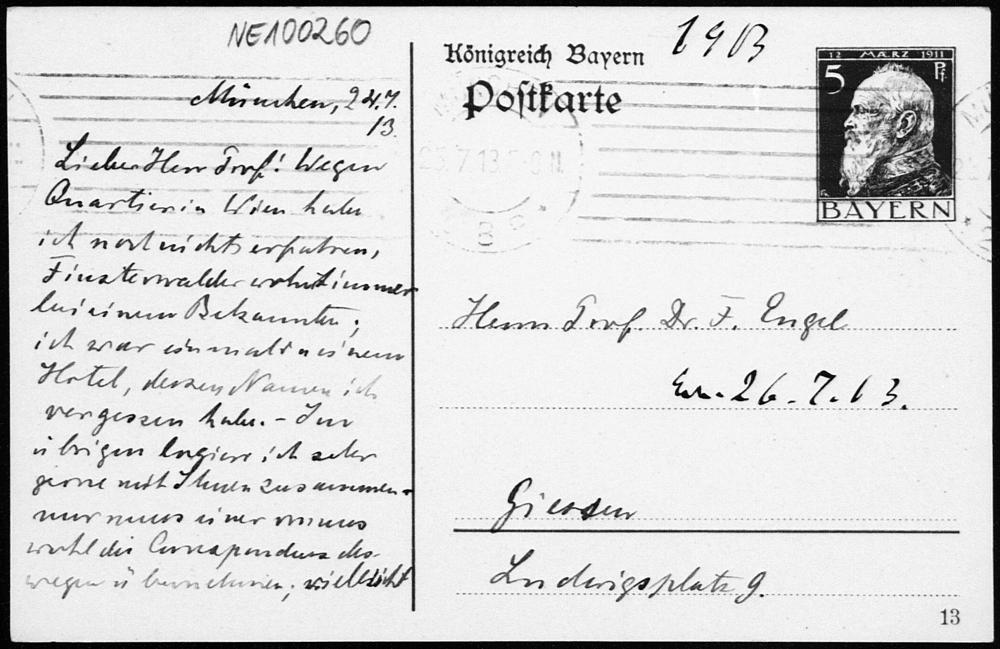 NE100260
München, 24.7.
13.
Lieber Herr Prof! Wegen
Quartier in Wien habe
ich noch nichts erfahren,
Finsterwalder wohnt immer
bei einem Bekannten;
ich war einmal in einem
Hotel, dessen Namen ich
vergessen habe. – Im
übrigen logiere ich sehr
gerne mit Ihnen zusammen –
nur muss einer von uns
wohl die Correspondenz des-
wegen übernehmen; vielleicht
Königreich Bayern
1913
Postkarte
12 MÄRZ 1911
5 Pf.
BAYERN
25.7.13
8
Herrn Prof. Dr. F. Engel
26.7.13.
Giessen
Ludwigsplatz 9.
13